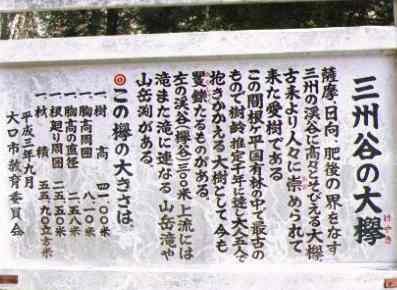 三州谷の大欅
けやき
薩摩、日向、肥後の界をなす
三州の渓谷に高々とそびえる大欅
古来より人々に崇められて
来た愛樹である
この間根ヶ平国有林の中で最古の
もので樹齢推定千年に達し大人五人で
抱きかかえる大樹として今も
矍鑠たるものがある。
左の渓谷(欅谷)三〇〇米上流には
滝また滝に連なる山岳滝や
山岳渕がある。
◎この欅の大きさは、
一樹高 四一・〇〇米
一胸高周囲 八・一〇米
一胸高の直径 二・五八米
一根廻り周囲 二五・五〇米
一材積 五五・九〇立方米
平成三年九月
大口市教育委員会